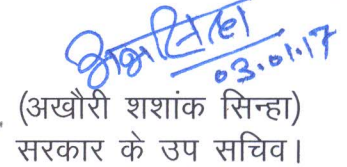 03.01.17
(अखौरी शशांक सिन्हा)
सरकार के उप सचिव।